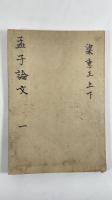 梁惠王上下
孟子論文 一